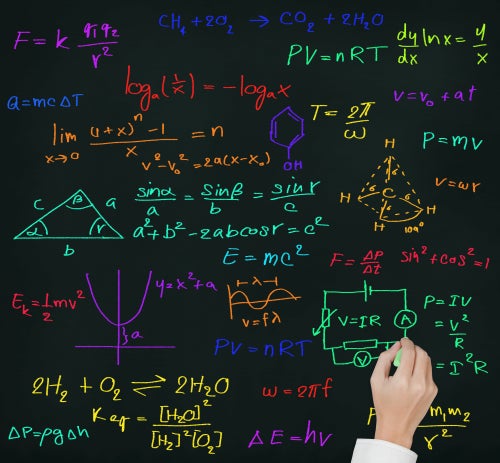 CH₄ + 2O₂ → CO₂ + 2H₂O
F = k q₁q₂/r²
PV = nRT
dy/dx ln x = y/x
logₐ(1/x) = -logₐx
Q = mcΔT
v = v₀ + at
T = 2π/ω
lim x→0 (1+x)ⁿ - 1 / x = n
P = mv
OH
v² - v₀² = 2a(x - x₀)
H
C
H H H
109°
v = wr
c β a
α r
b
sinα/a = sinβ/b = sin r/c
a² + b² - 2abcosr = c²
E = mc²
F = ΔP/Δt
sin² + cos² = 1
y = x² + a
a
λ
v = fλ
Eₖ = 1/2 mv²
V = IR
A
V
P = IV
= V²/R
= I²R
PV = nRT
2H₂ + O₂ ⇌ 2H₂O
ω = 2πf
Keq = [H₂O]²/[H₂]²[O₂]
ΔP = ρgΔh
ΔE = hv
m₁m₂/r²